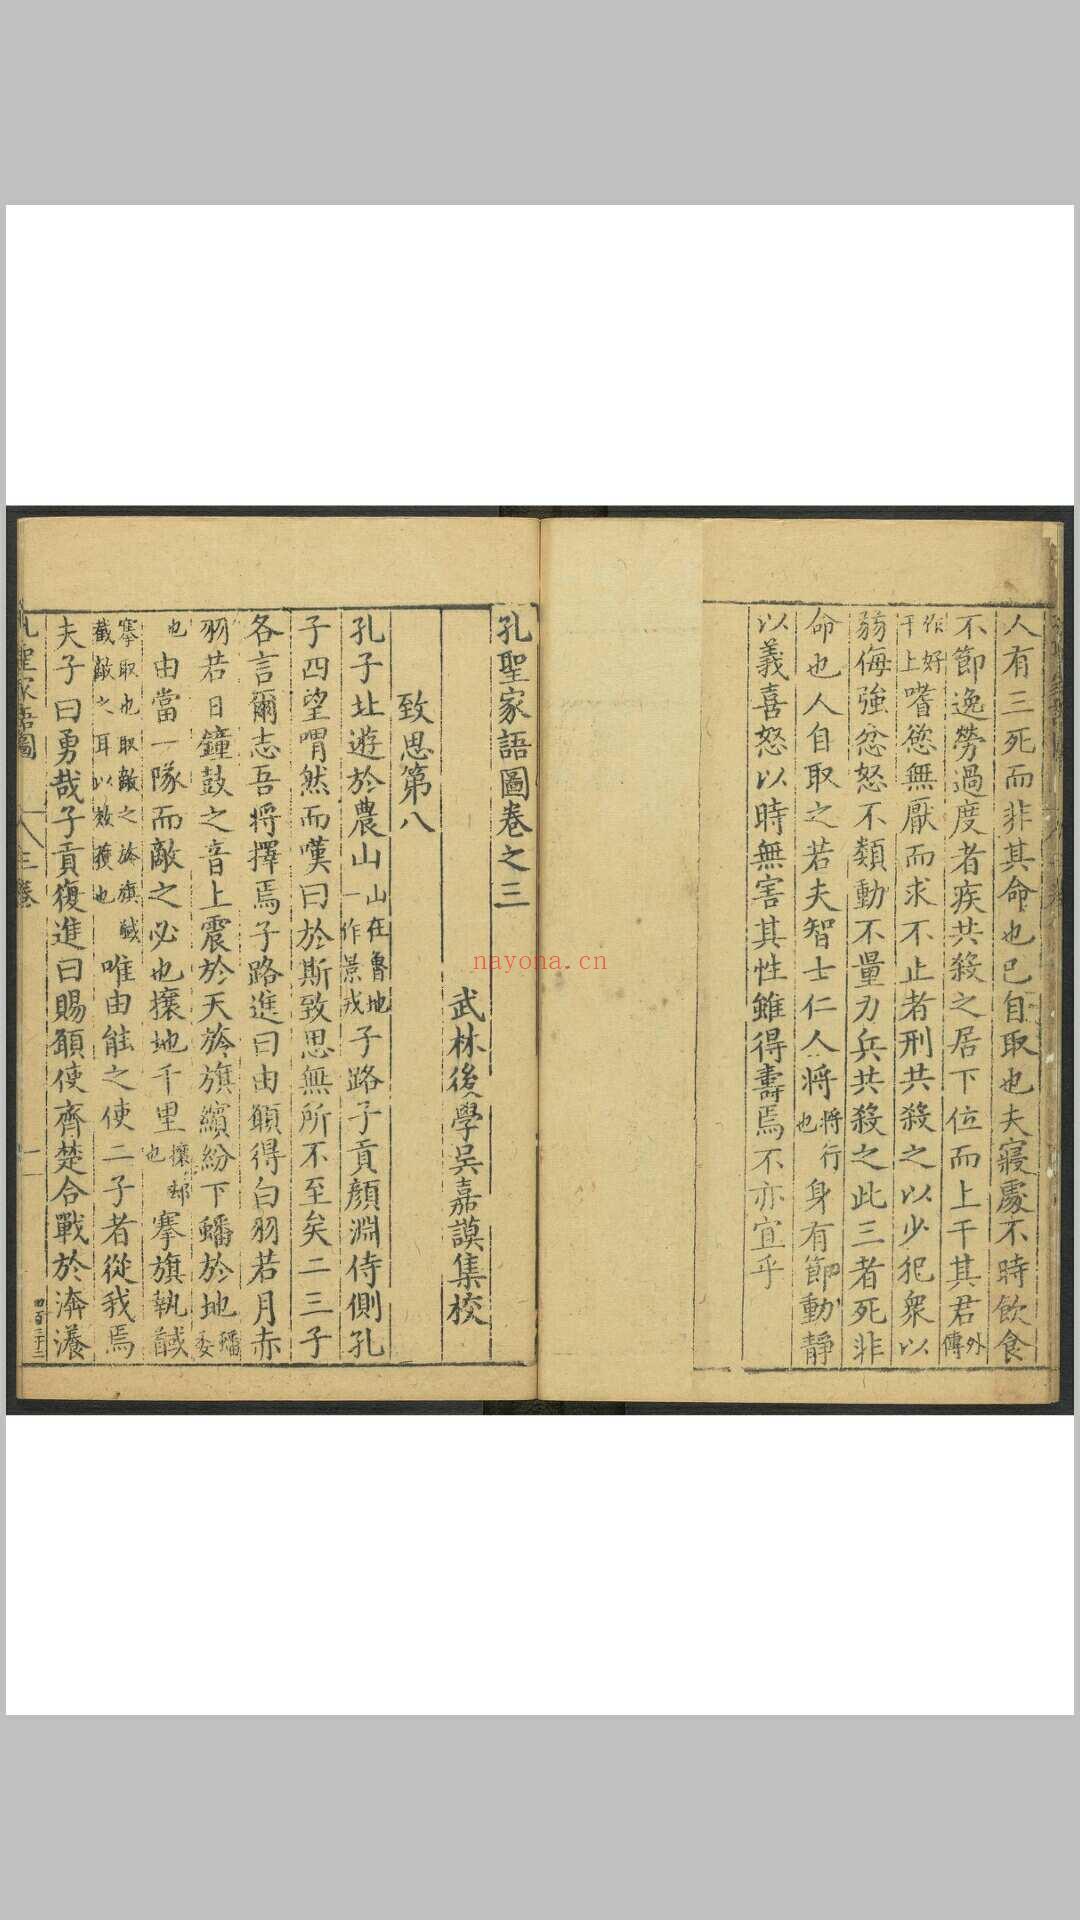 人有三死而非其命也已自取也夫寢處不時飲食
不節逸勞過度者疾共殺之居下位而上干其君外傳
作好干上嗜慾無厭而求不止者刑共殺之以少犯衆以
弱侮強忿怒不類動不量力兵共殺之此三者死非
命也人自取之若夫智士仁人將將行也身有節動靜
以義喜怒以時無害其性雖得壽焉不亦宜乎
孔聖家語圖卷之三
武林後學吳嘉謨集校
致思第八
孔子北遊於農山山在魯地一作景戎子路子貢顏淵侍側孔
子四望喟然而嘆曰於斯致思無所不至矣二三子
各言爾志吾將擇焉子路進曰由願得白羽若月赤
羽若日鐘鼓之音上震於天旍旗繽紛下蟠於地蟠委
也由當一隊而敵之必也攘地千里攘郤也搴旗執馘
搴取也取敵之旍旗馘截敵之耳以效獲也唯由能之使二子者從我焉
夫子曰勇哉子貢復進曰賜願使齊楚合戰於漭瀁
孔聖家語圖
三卷
一
四百三十三
nayona.cn